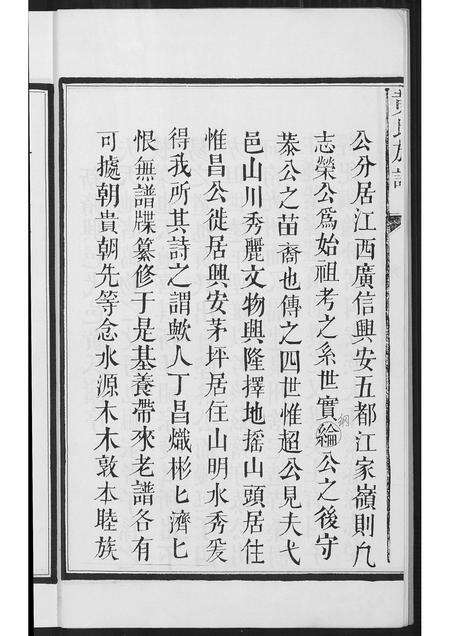 黃氏族譜
公分居江西廣信興安五都江家嶺則凢
志榮公爲始祖考之系世實綸公之後守
恭公之苗裔也傳之四世惟超公見夫弋
邑山川秀麗文物興隆擇地搖山頭居住
惟昌公徙居興安茅坪居住山明水秀爰
得我所其詩之謂歟人丁昌熾彬匕濟匕
恨無譜牒纂修于是基養帶來老譜各有
可摅朝貴朝先等念水源木木敦本睦族